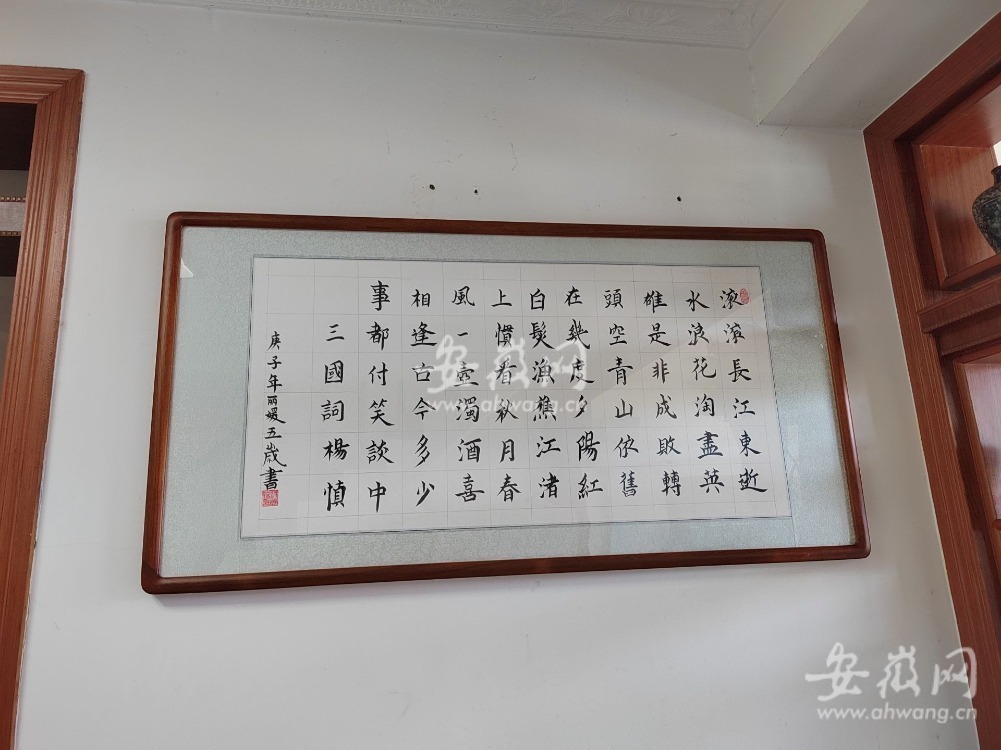 滚滚長江東逝
水浪花淘盡英
雄是非成敗轉
頭空青山依舊
在幾度夕陽紅
白髮漁樵江渚
上慣看秋月春
風一壺濁酒喜
相逢古今多少
事都付笑談中
三國詞楊慎
庚子年丽媛五歲書
安徽网
www.ahwang.cn
安徽网
www.ahwang.cn